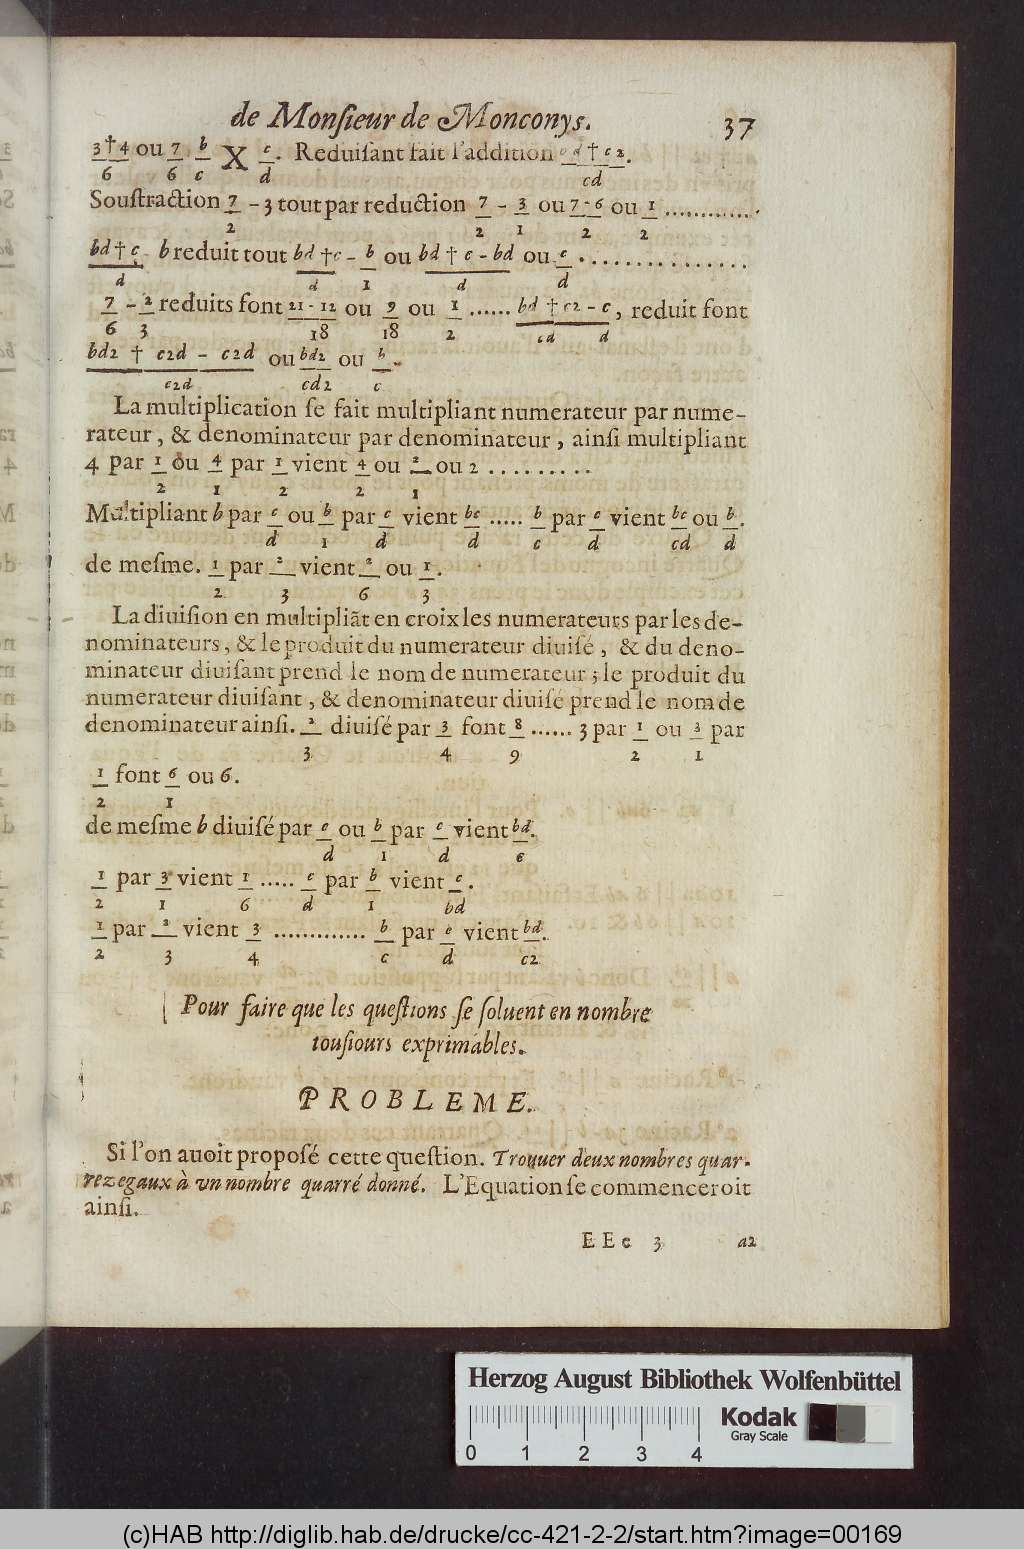 de Monſieur de Monconys. 37
3†4 ou 7 b X c. Reduiſant fait l'addition c d † c 2.
6 6 c d cd
Souſtraction 7 – 3 tout par reduction 7 – 3 ou 7-6 ou 1 .............
2 2 1 2 2
bd † c. b reduit tout bd †c – b ou bd † c – bd ou c . . . . . . . . . . . . . . . .
d d 1 d d
7 – 2 reduits font 21 - 12 ou 9 ou 1 ...... bd † c2 – c, reduit font
6 3 18 18 2 cd d
bd2 † c2d – c2d ou bd2 ou b.
c2d cd2 c
La multiplication ſe fait multipliant numerateur par nume-
rateur, & denominateur par denominateur, ainſi multipliant
4 par 1 ou 4 par 1 vient 4 ou 2 ou 2 . . . . . . . . .
2 1 2 2 1
Multipliant b par c ou b par c vient bc ..... b par c vient bc ou b.
d 1 d d c d cd d
de meſme. 1 par 2 vient 2 ou 1.
2 3 6 3
La diuiſion en multipliãt en croix les numerateurs par les de-
nominateurs, & le produit du numerateur diuiſé, & du deno-
minateur diuiſant prend le nom de numerateur; le produit du
numerateur diuiſant, & denominateur diuiſé prend le nom de
denominateur ainſi. 2 diuiſé par 3 font 8 ...... 3 par 1 ou 3 par
3 4 9 2 1
1 font 6 ou 6.
2 1
de meſme b diuiſé par c ou b par c vient bd.
d 1 d c
1 par 3 vient 1 ..... c par b vient c.
2 1 6 d 1 bd
1 par 2 vient 3 ............. b par c vient bd.
2 3 4 c d c2
Pour faire que les queſtions ſe ſoluent en nombre
touſiours exprimables.
PROBLEME.
Si l'on auoit propoſé cette queſtion. Trouuer deux nombres quar-
rez egaux à vn nombre quarré donné. L'Equation ſe commenceroit
ainſi.
EEe 3 a2
Herzog August Bibliothek Wolfenbüttel
Kodak
Gray Scale
0 1 2 3 4
(c)HAB http://diglib.hab.de/drucke/cc-421-2-2/start.htm?image=00169